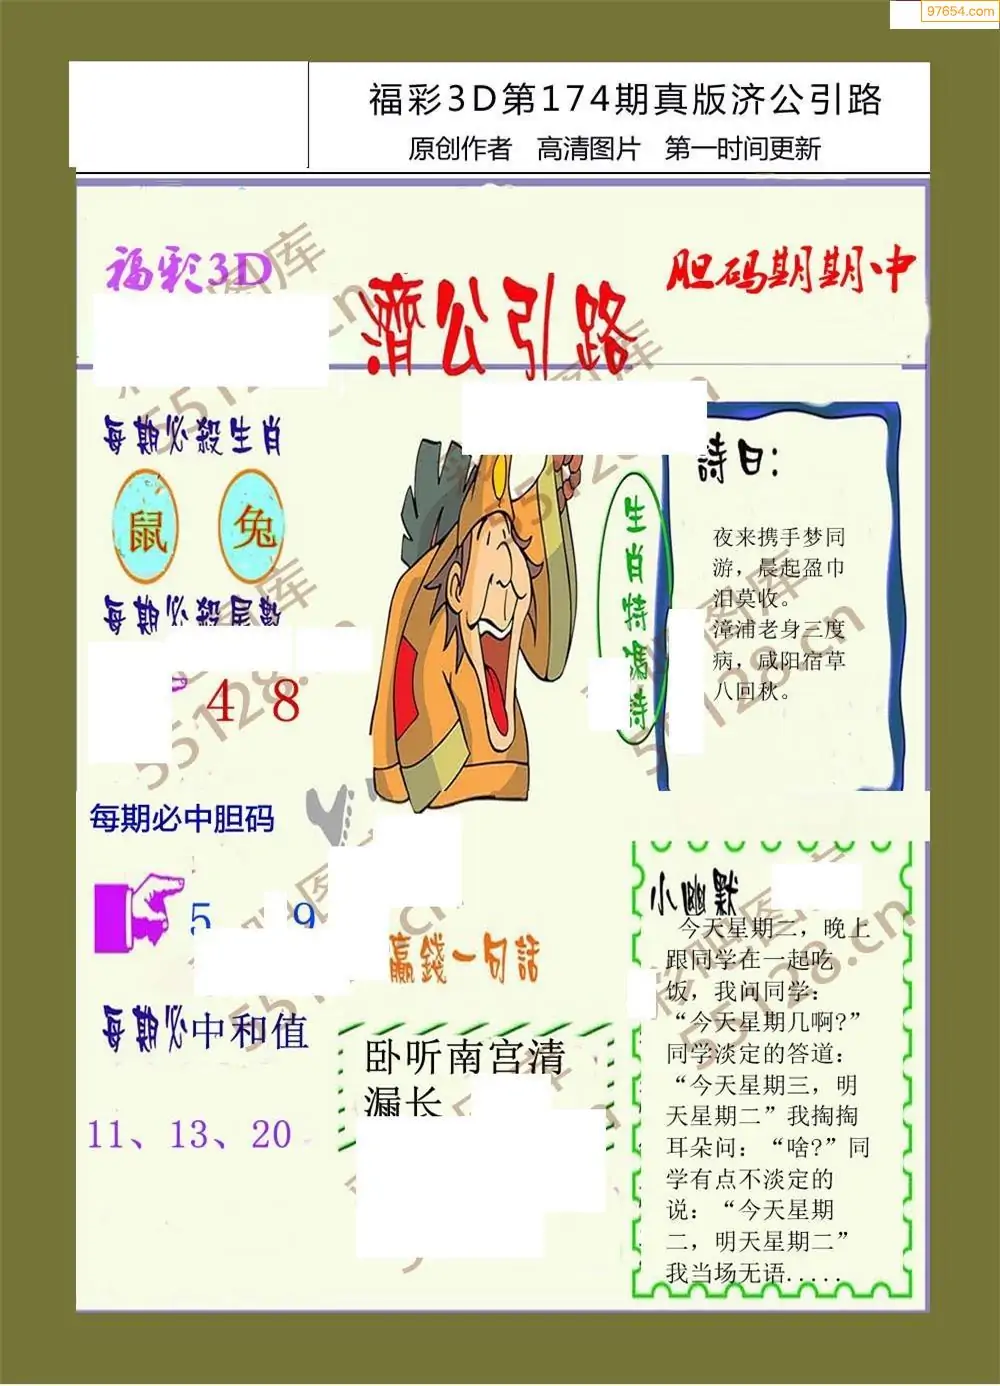 97654.com
福彩3D第174期真版济公引路
原创作者 高清图片 第一时间更新
福彩3D
胆码期期中
濟公引路
每期必殺生肖
鼠 兔
每期必殺尾數
4 8
每期必中胆码
5 9
每期必中和值
11、13、20
生肖特馮詩
詩曰:
夜来携手梦同
游，晨起盈巾
泪莫收。
漳浦老身三度
病，咸阳宿草
八回秋。
贏錢一句話
卧听南宫清
漏长
小幽默
今天星期二，晚上
跟同学在一起吃
饭，我问同学：
“今天星期几啊?”
同学淡定的答道：
“今天星期三，明
天星期二”我掏掏
耳朵问：“啥?”同
学有点不淡定的
说：“今天星期
二，明天星期二”
我当场无语.....
彩吧图库
55128.cn